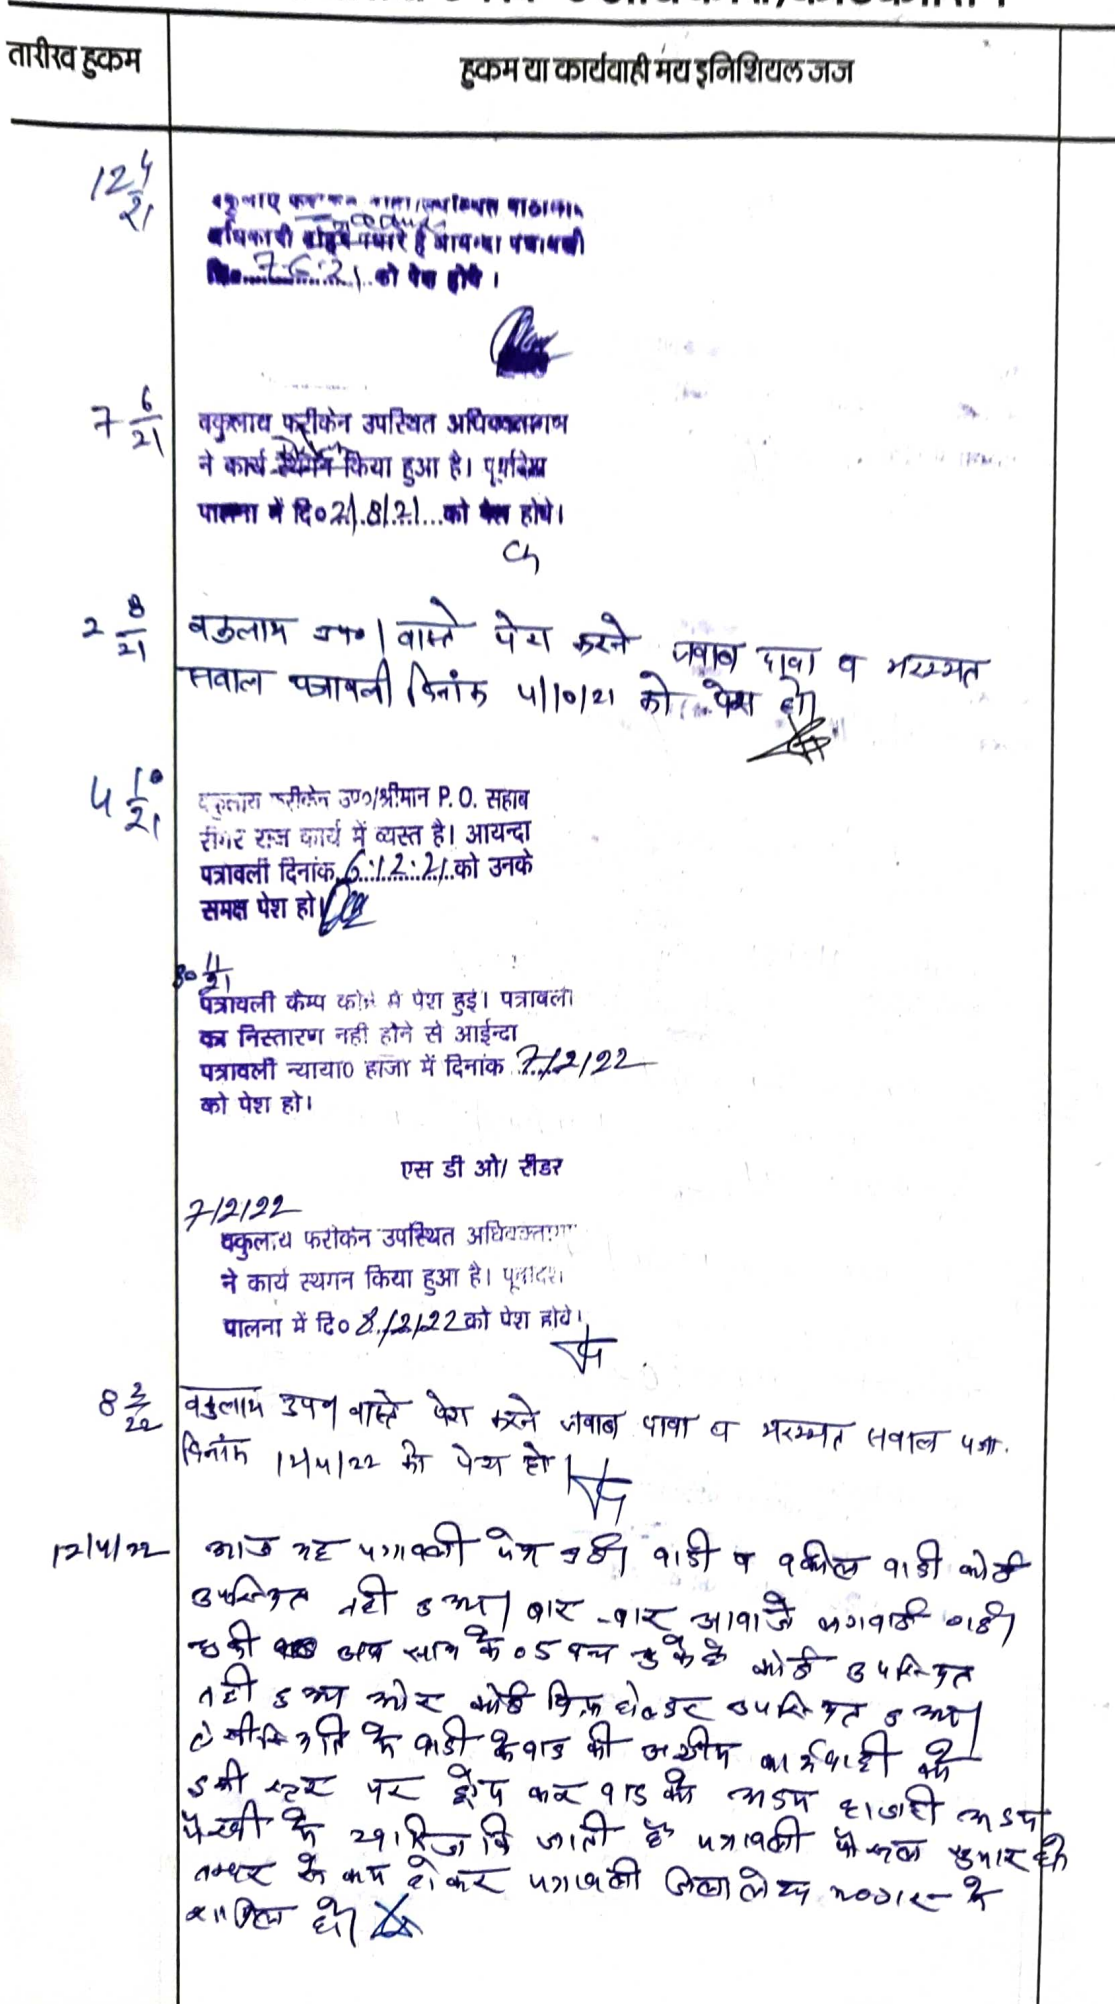 तारीख हुकम
हुकम या कार्यवाही मय इनिशियल जज
12 4/21
अधिकारी
7.6.21 को पेश होवे।
7 6/21
वकुलाय फरीकेन उपस्थित अधिवक्तागण
ने कार्य स्थगन किया हुआ है। पूर्वादेश
पालना में दि० 2/8/21 को पेश होवे।
2 8/21
वकुलाय उप०। वास्ते पेश करने जवाब दावा व मरम्मत
सवाल पत्रावली दिनांक 4/10/21 को पेश हो।
4 10/21
वकुलाय फरीकेन उप०/श्रीमान P. O. सहाब
दीगर राज कार्य में व्यस्त है। आयन्दा
पत्रावली दिनांक 6.12.21 को उनके
समक्ष पेश हो।
30 11/21
पत्रावली कैम्प कोर्ट में पेश हुई। पत्रावली
का निस्तारण नही होने से आईन्दा
पत्रावली न्याया० हाजा में दिनांक 7/2/22
को पेश हो।
एस डी ओ/ रीडर
7/2/22
वकुलाय फरीकेन उपस्थित अधिवक्तागण
ने कार्य स्थगन किया हुआ है। पूर्वादेश
पालना में दि० 8/2/22 को पेश होवे।
8 2/22
वकुलाय उप०। वास्ते पेश करने जवाब दावा व मरम्मत सवाल पत्रा.
दिनांक 12/4/22 को पेश हो।
12/4/22
आज यह पत्रावली पेश हुई। वादी व वकील वादी कोई
उपस्थित नही हुआ। बार-बार आवाजे लगवाई गई।
अब साय के 05 बज चुके है कोई उपस्थित
नही हुआ ओर कोई उपस्थित हुआ।
के वादी के वाद की अग्रीम कार्यवाही को
इसी स्टेज पर ड्रोप कर वाद को अदम हाजरी अदम
पैरवी में खारिज कि जाती है पत्रावली फैसल शुमार हो
नम्बर से कम होकर पत्रावली
दाखिल हो।